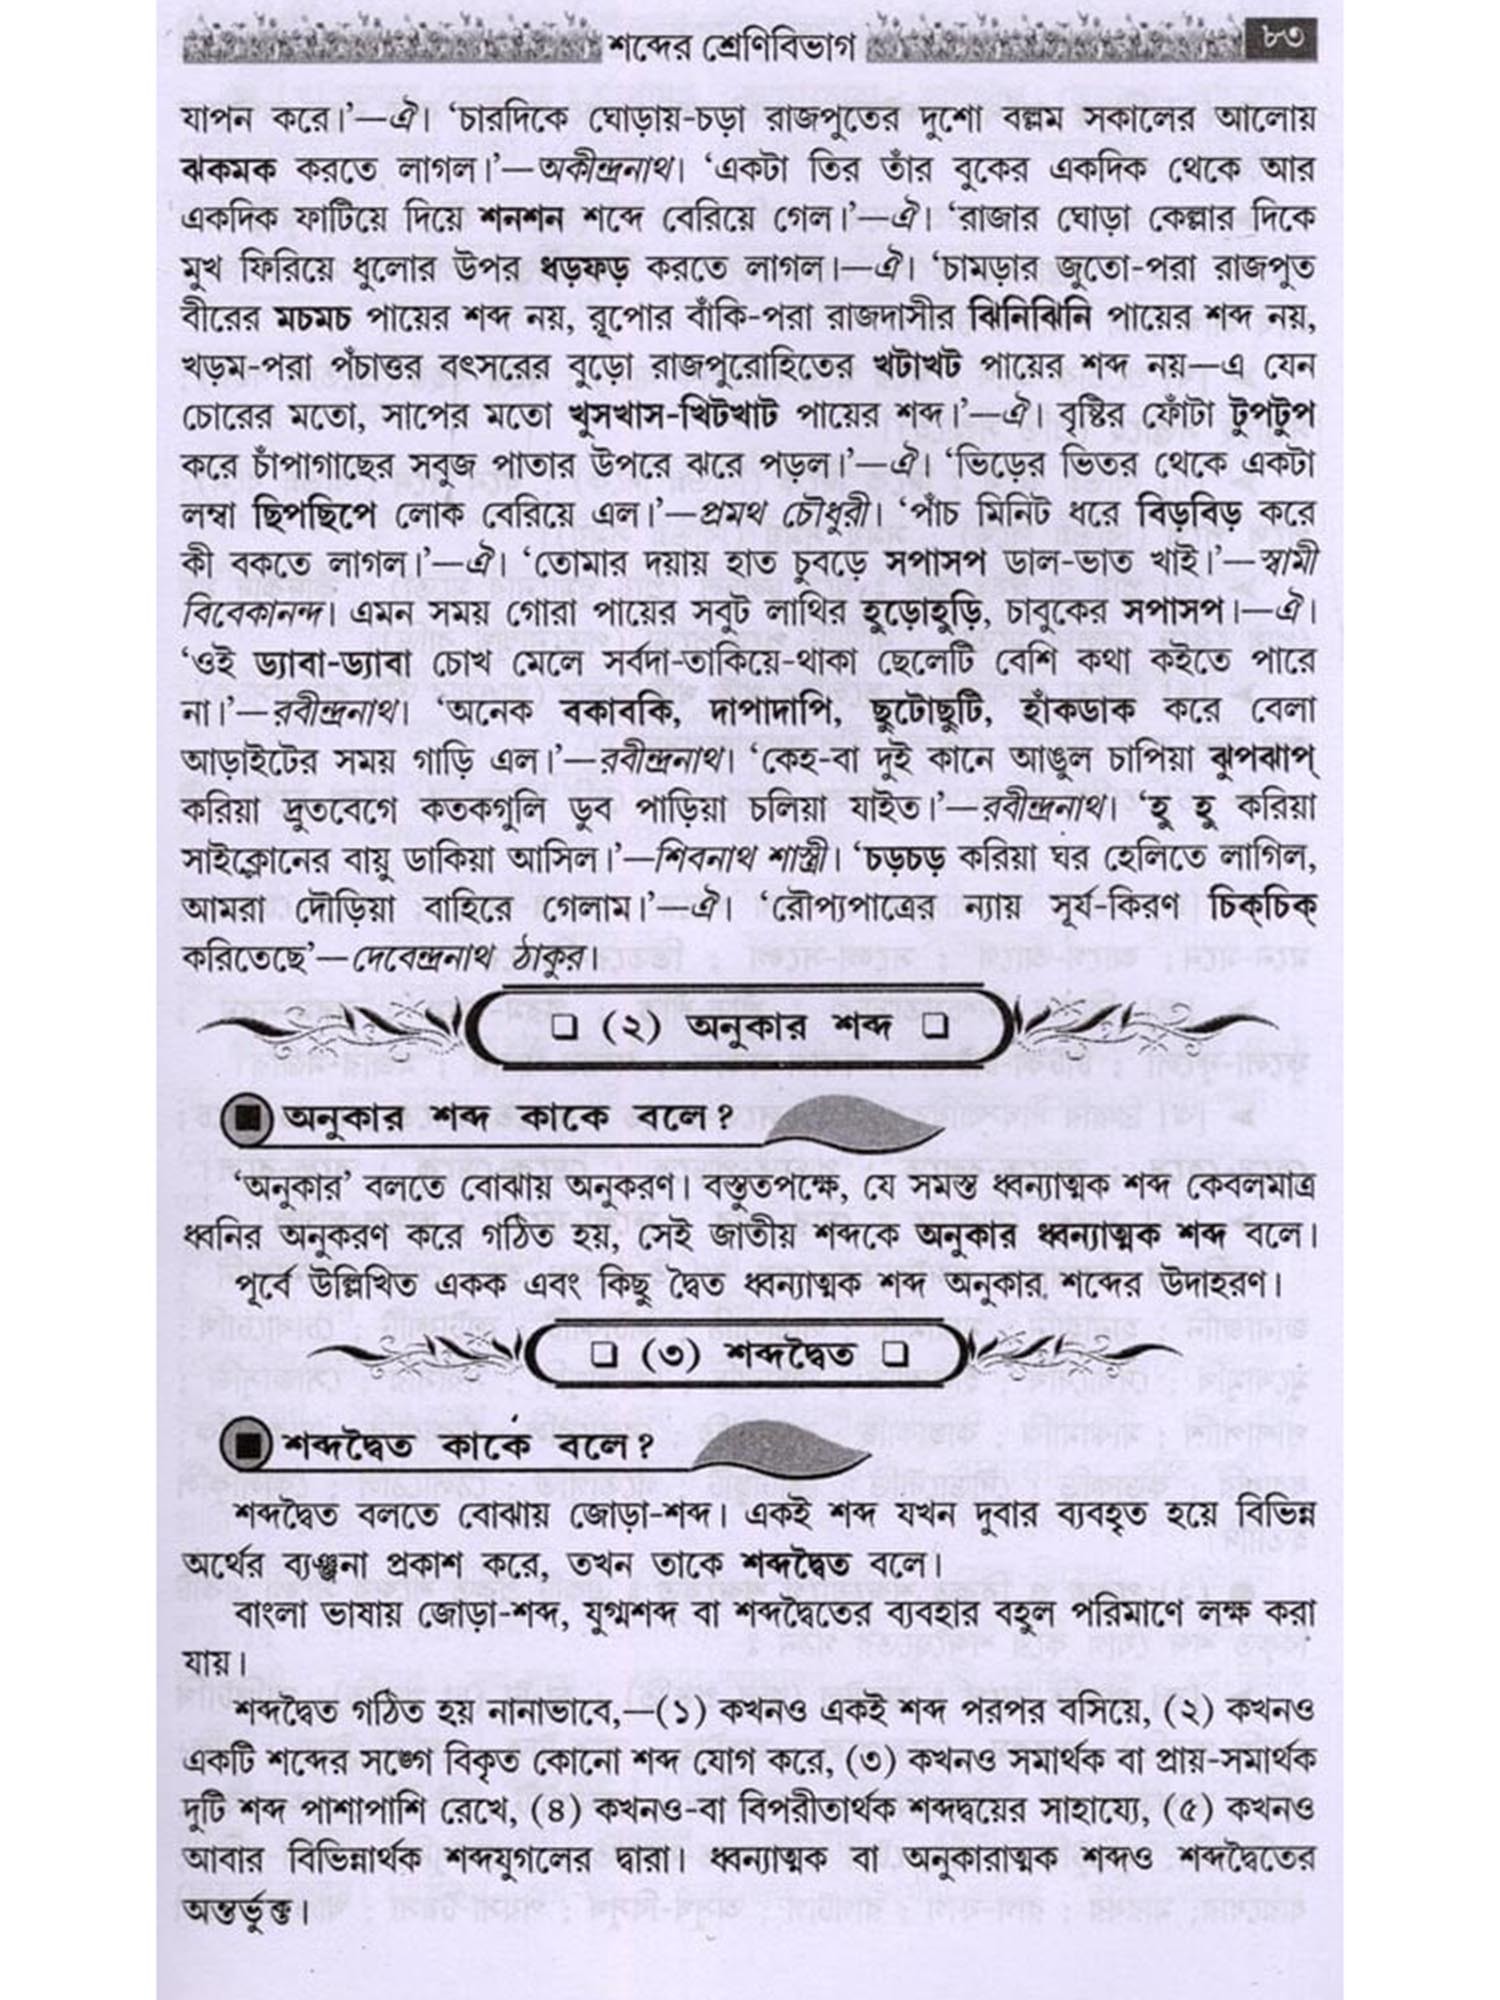 শব্দের শ্রেণিবিভাগ ৮৩
যাপন করে।’—ঐ। ‘চারদিকে ঘোড়ায়-চড়া রাজপুতের দুশো বল্লম সকালের আলোয়
ঝকমক করতে লাগল।’—অকীন্দ্রনাথ। ‘একটা তির তাঁর বুকের একদিক থেকে আর
একদিক ফাটিয়ে দিয়ে শনশন শব্দে বেরিয়ে গেল।’—ঐ। ‘রাজার ঘোড়া কেল্লার দিকে
মুখ ফিরিয়ে ধুলোর উপর ধড়ফড় করতে লাগল।—ঐ। ‘চামড়ার জুতো-পরা রাজপুত
বীরের মচমচ পায়ের শব্দ নয়, রূপোর বাঁকি-পরা রাজদাসীর ঝিনিঝিনি পায়ের শব্দ নয়,
খড়ম-পরা পঁচাত্তর বৎসরের বুড়ো রাজপুরোহিতের খটাখট পায়ের শব্দ নয়—এ যেন
চোরের মতো, সাপের মতো খুসখাস-খিটখাট পায়ের শব্দ।’—ঐ। বৃষ্টির ফোঁটা টুপটুপ
করে চাঁপাগাছের সবুজ পাতার উপরে ঝরে পড়ল।’—ঐ। ‘ভিড়ের ভিতর থেকে একটা
লম্বা ছিপছিপে লোক বেরিয়ে এল।’—প্রমথ চৌধুরী। ‘পাঁচ মিনিট ধরে বিড়বিড় করে
কী বকতে লাগল।’—ঐ। ‘তোমার দয়ায় হাত চুবড়ে সপাসপ ডাল-ভাত খাই।’—স্বামী
বিবেকানন্দ। এমন সময় গোরা পায়ের সবুট লাথির হুড়োহুড়ি, চাবুকের সপাসপ।—ঐ।
‘ওই ড্যাবা-ড্যাবা চোখ মেলে সর্বদা-তাকিয়ে-থাকা ছেলেটি বেশি কথা কইতে পারে
না।’—রবীন্দ্রনাথ। ‘অনেক বকাবকি, দাপাদাপি, ছুটোছুটি, হাঁকডাক করে বেলা
আড়াইটের সময় গাড়ি এল।’—রবীন্দ্রনাথ। ‘কেহ-বা দুই কানে আঙুল চাপিয়া ঝুপঝাপ্
করিয়া দ্রুতবেগে কতকগুলি ডুব পাড়িয়া চলিয়া যাইত।’—রবীন্দ্রনাথ। ‘হু হু করিয়া
সাইক্লোনের বায়ু ডাকিয়া আসিল।’—শিবনাথ শাস্ত্রী। ‘চড়চড় করিয়া ঘর হেলিতে লাগিল,
আমরা দৌড়িয়া বাহিরে গেলাম।’—ঐ। ‘রৌপ্যপাত্রের ন্যায় সূর্য-কিরণ চিক্‌চিক্
করিতেছে’—দেবেন্দ্রনাথ ঠাকুর।
❑ (২) অনুকার শব্দ ❑
■ অনুকার শব্দ কাকে বলে?
‘অনুকার’ বলতে বোঝায় অনুকরণ। বস্তুতপক্ষে, যে সমস্ত ধ্বন্যাত্মক শব্দ কেবলমাত্র
ধ্বনির অনুকরণ করে গঠিত হয়, সেই জাতীয় শব্দকে অনুকার ধ্বন্যাত্মক শব্দ বলে।
পূর্বে উল্লিখিত একক এবং কিছু দ্বৈত ধ্বন্যাত্মক শব্দ অনুকার শব্দের উদাহরণ।
❑ (৩) শব্দদ্বৈত ❑
■ শব্দদ্বৈত কাকে বলে?
শব্দদ্বৈত বলতে বোঝায় জোড়া-শব্দ। একই শব্দ যখন দুবার ব্যবহৃত হয়ে বিভিন্ন
অর্থের ব্যঞ্জনা প্রকাশ করে, তখন তাকে শব্দদ্বৈত বলে।
বাংলা ভাষায় জোড়া-শব্দ, যুগ্মশব্দ বা শব্দদ্বৈতের ব্যবহার বহুল পরিমাণে লক্ষ করা
যায়।
শব্দদ্বৈত গঠিত হয় নানাভাবে,—(১) কখনও একই শব্দ পরপর বসিয়ে, (২) কখনও
একটি শব্দের সঙ্গে বিকৃত কোনো শব্দ যোগ করে, (৩) কখনও সমার্থক বা প্রায়-সমার্থক
দুটি শব্দ পাশাপাশি রেখে, (৪) কখনও-বা বিপরীতার্থক শব্দদ্বয়ের সাহায্যে, (৫) কখনও
আবার বিভিন্নার্থক শব্দযুগলের দ্বারা। ধ্বন্যাত্মক বা অনুকারাত্মক শব্দও শব্দদ্বৈতের
অন্তর্ভুক্ত।